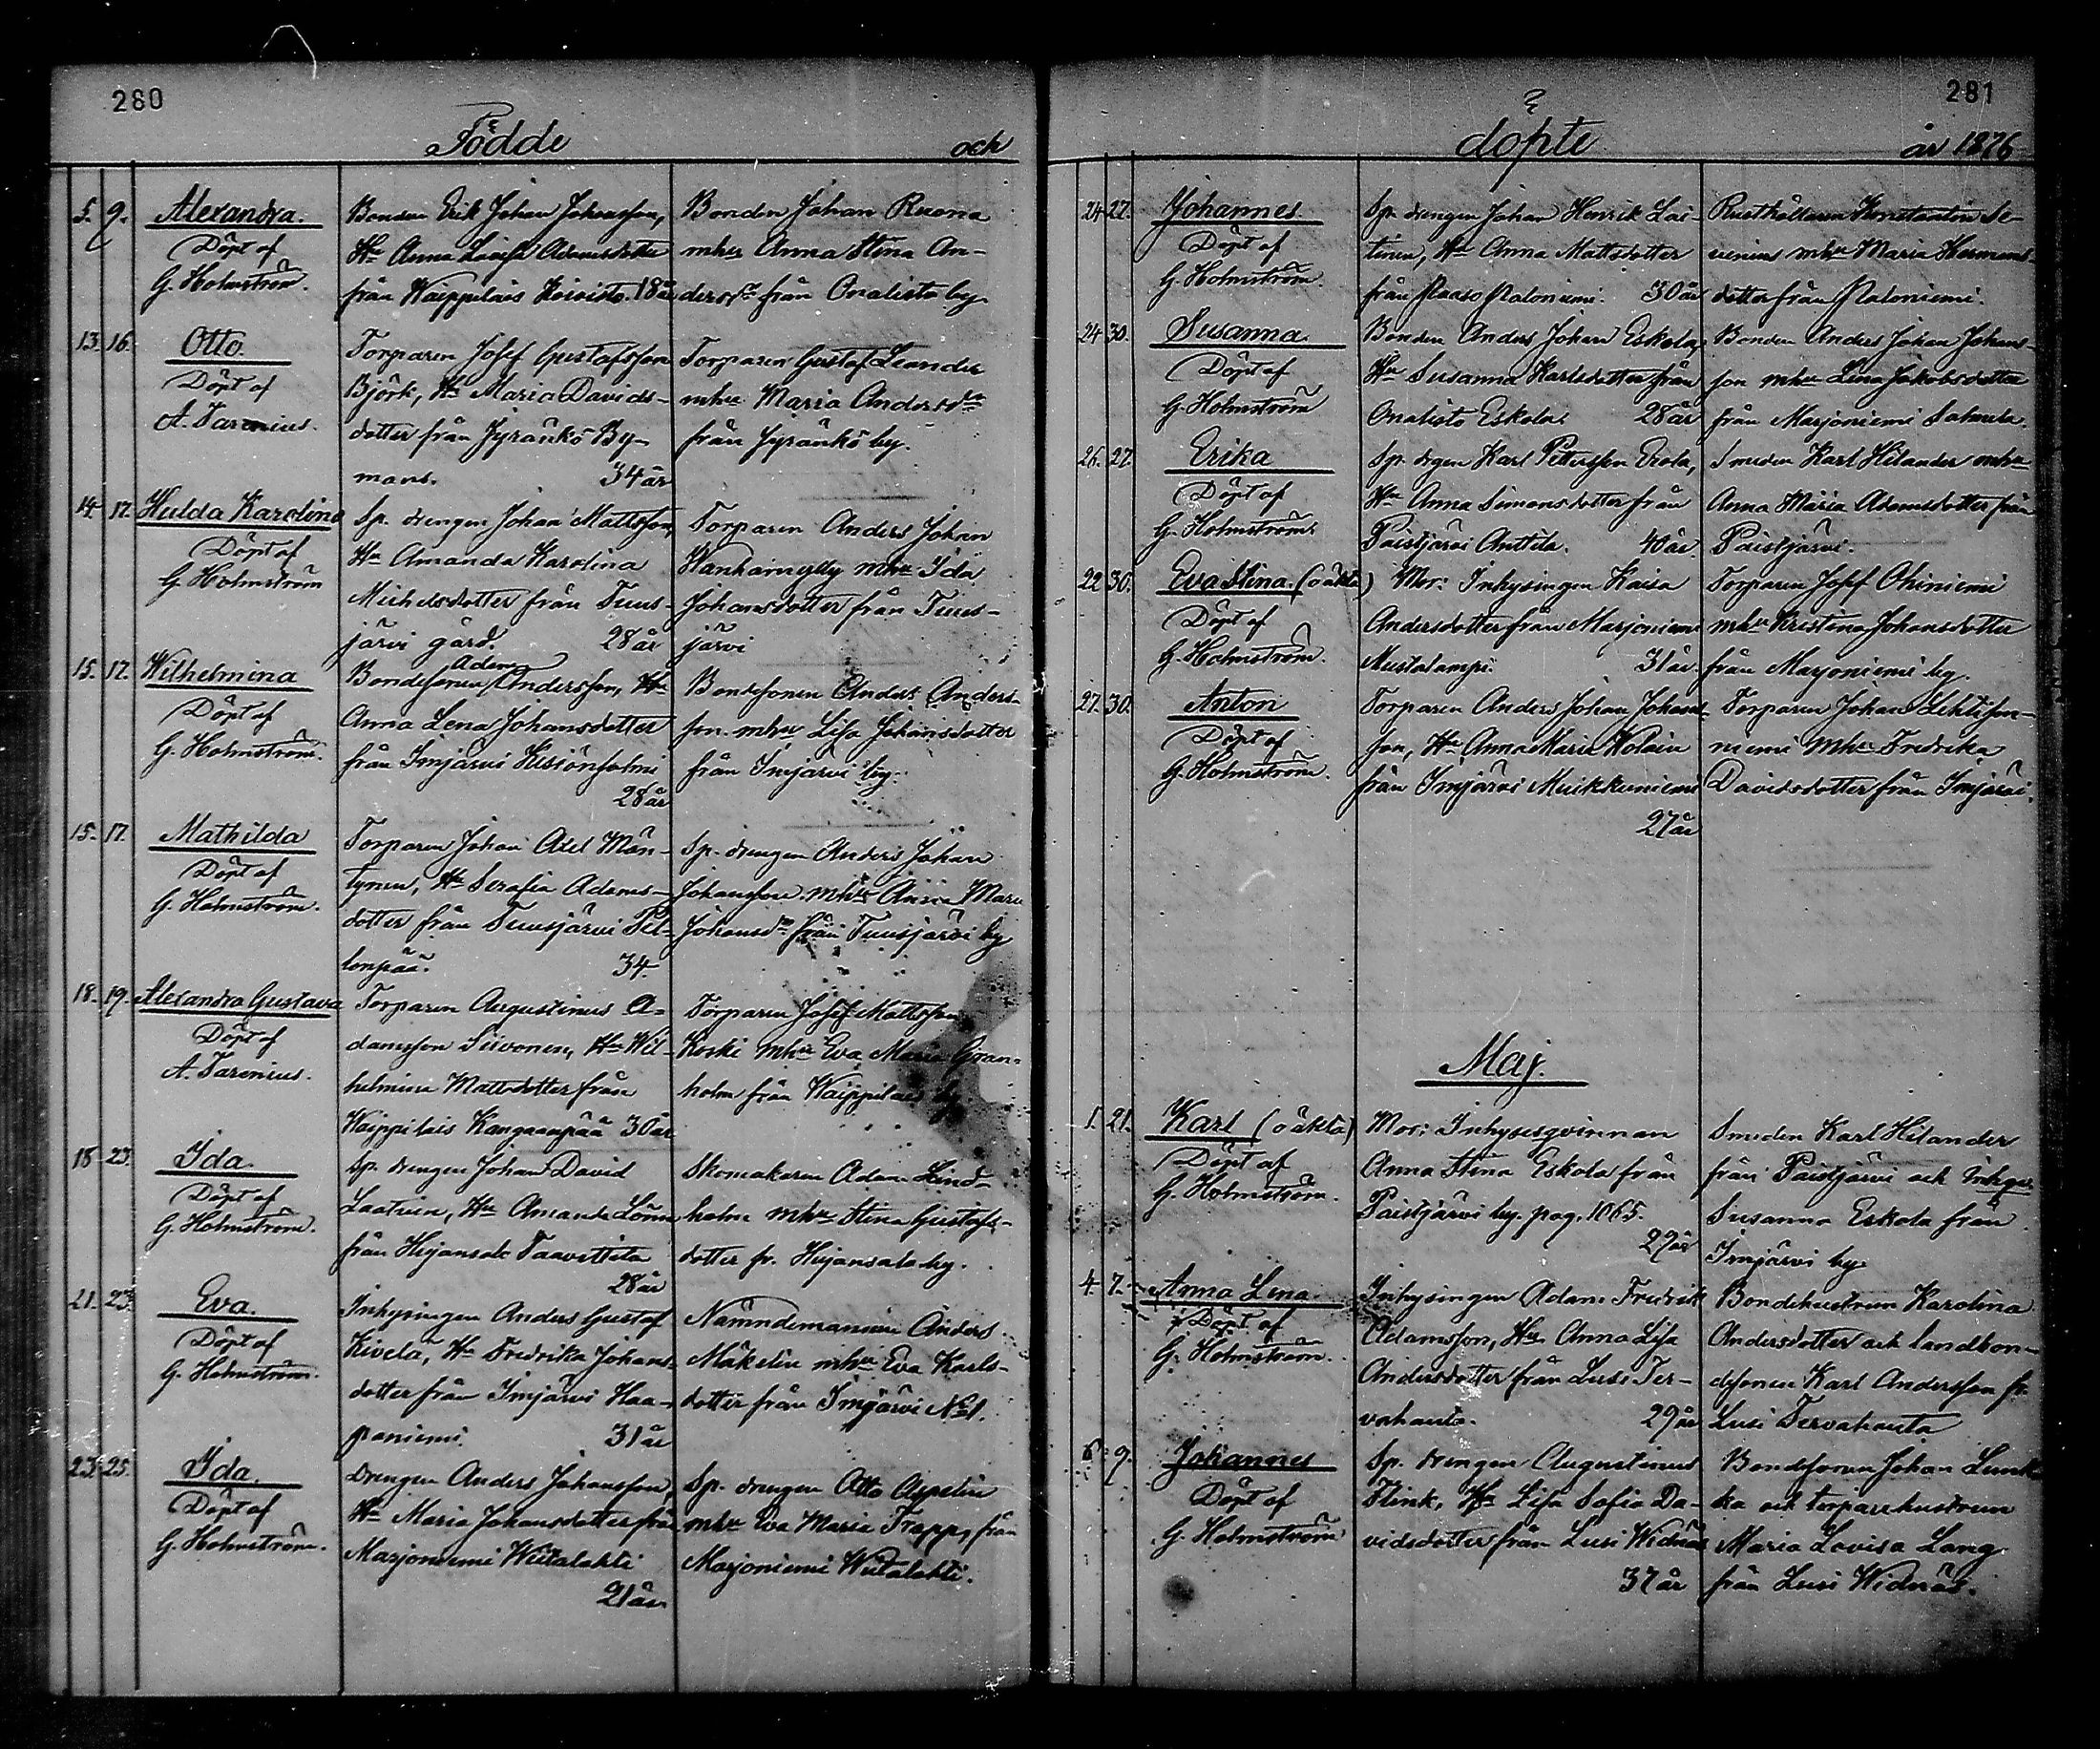 280
Födde och
5. 9. Alexandra.
Döpt af
G. Holmström.
Bonden Erik Johan Johansson,
Hu Anna Lovisa Adamsdotter
från Waippilais Koivisto. 18 år
Bonden Johan Ruona
mhu Anna Stina An-
dersdr från Onalisto by.
13. 16. Otto.
Döpt af
A. Tarenius.
Torparen Josef Gustafsson
Björk, Hu Maria Davids-
dotter från Jyränkö By-
mans. 34 år
Torparen Gustaf Leander
mhu Maria Andersdr
från Jyränkö by.
14. 17. Hulda Karolina
Döpt af
G. Holmström
Sp. drengen Johan Mattsson,
Hu Amanda Karolina
Michelsdotter från Tuus-
järvi gård. 28 år
Torparen Anders Johan
Wanhamylly mhu Ida
Johansdotter från Tuus-
järvi
15. 17. Wilhelmina
Döpt af
G. Holmström.
Adam
Bondesonen Andersson, Hu
Anna Lena Johansdotter
från Imjärvi
28 år
Bondesonen Anders Anders-
son mhu Lisa Johansdotter
från Imjärvi by.
15. 17. Mathilda
Döpt af
G. Holmström.
Torparen Johan Axel Män-
tynen, Hu Serafia Adams-
dotter från Tuusjärvi Pel-
lonpää. 34.
Sp. drengen Anders Johan
Johansson mhu Anna Maria
Johansdr från Tuusjärvi by
18. 19. Alexandra Gustava
Döpt af
A. Tarenius.
Torparen Augustinus A-
damsson Siivonen, Hu Wil-
helmina Mattsdotter från
Waippilais Kangaanpää 30 år
Torparen Josef Mattsson
Koski mhu Eva Maria Gran-
holm från Waippilais by.
18 23. Ida.
Döpt af
G. Holmström.
Sp. drengen Johan David
Laatuin, Hu Amanda Lönn
från Heijansala Taavettila
28 år
Skomakaren Adam Lind-
holm mhu Stina Gustafs-
dotter fr. Heijansala by.
21. 23. Eva.
Döpt af
G. Holmström.
Inhysingen Anders Gustaf
Kivelä, Hu Fredrika Johans-
dotter från Imjärvi Haa-
paniemi. 31 år
Nämndemannen Anders
Mäkelin mhu Eva Karls-
dotter från Imjärvi No 1.
23. 25. Ida.
Döpt af
G. Holmström.
Drengen Anders Johansson,
Hu Maria Johansdotter från
Marjoniemi Wiitalahti
21 år
Sp. drengen Otto Aspelin
mhu Eva Maria Trapp, från
Marjoniemi Wiitalahti.
281
döpte år 1876
24 27. Johannes
Döpt af
G. Holmström.
Sp. drengen Johan Henrik Lai-
tinen, Hu Anna Mattsdotter
från Paaso Paloniemi. 30 år
Rusthållaren Konstantin Se-
venius mhu Maria Hermans-
dotter från Paloniemi.
24 30. Susanna.
Döpt af
G. Holmström
Bonden Anders Johan Eskola,
Hu Susanna Karlsdotter från
Onalisto Eskola. 28 år
Bonden Anders Johan Johans-
son mhu Lena Jakobsdotter
från Marjoniemi Salmela.
26. 27. Erika
Döpt af
G. Holmström.
Sp. drgen Karl Pettersson Erola,
Hu Anna Simonsdotter från
Paistjärvi Anttila. 40 år
Smeden Karl Hilander mhu
Anna Maria Adamsdotter från
Paistjärvi.
22. 30. Eva Stina. (oäkta)
Döpt af
G. Holmström.
Mor: Inhysingen Kaisa
Andersdotter från Marjoniemi
Mustalampi. 31 år.
Torparen Josef Ohiniemi
mhu Kristina Johansdotter
från Marjoniemi by.
27. 30. Anton
Döpt af
G. Holmström.
Torparen Anders Johan Johans-
son, Hu Anna Maria Wolain
från Imjärvi Muikkuniemi
27 år
Torparen Johan Lehtison-
niemi mhu Fredrika
Davidsdotter från Imjärvi.
Maj.
1. 21. Karl (oäkta)
Döpt af
G. Holmström.
Mor: Inhysesqvinnan
Anna Stina Eskola från
Paistjärvi by. pag. 1065.
27 år
Smeden Karl Hilander
från Paistjärvi och Inhqn
Susanna Eskola från
Imjärvi by.
4. 7. Anna Lena.
Döpt af
G. Holmström.
Inhysingen Adam Fredrik
Adamsson, Hu Anna Lisa
Andersdotter från Lusi Ter-
vahauta. 29 år
Bondehustrun Karolina
Andersdotter och landbon-
desonen Karl Andersson fr.
Lusi Tervahauta
6. 9. Johannes
Döpt af
G. Holmström
Sp. drengen Augustinus
Flink, Hu Lisa Sofia Da-
vidsdotter från Lusi Widnäs
37 år
Bondesonen Johan Lunk-
ka och torparehustrun
Maria Lovisa Lang
från Lusi Widnäs.